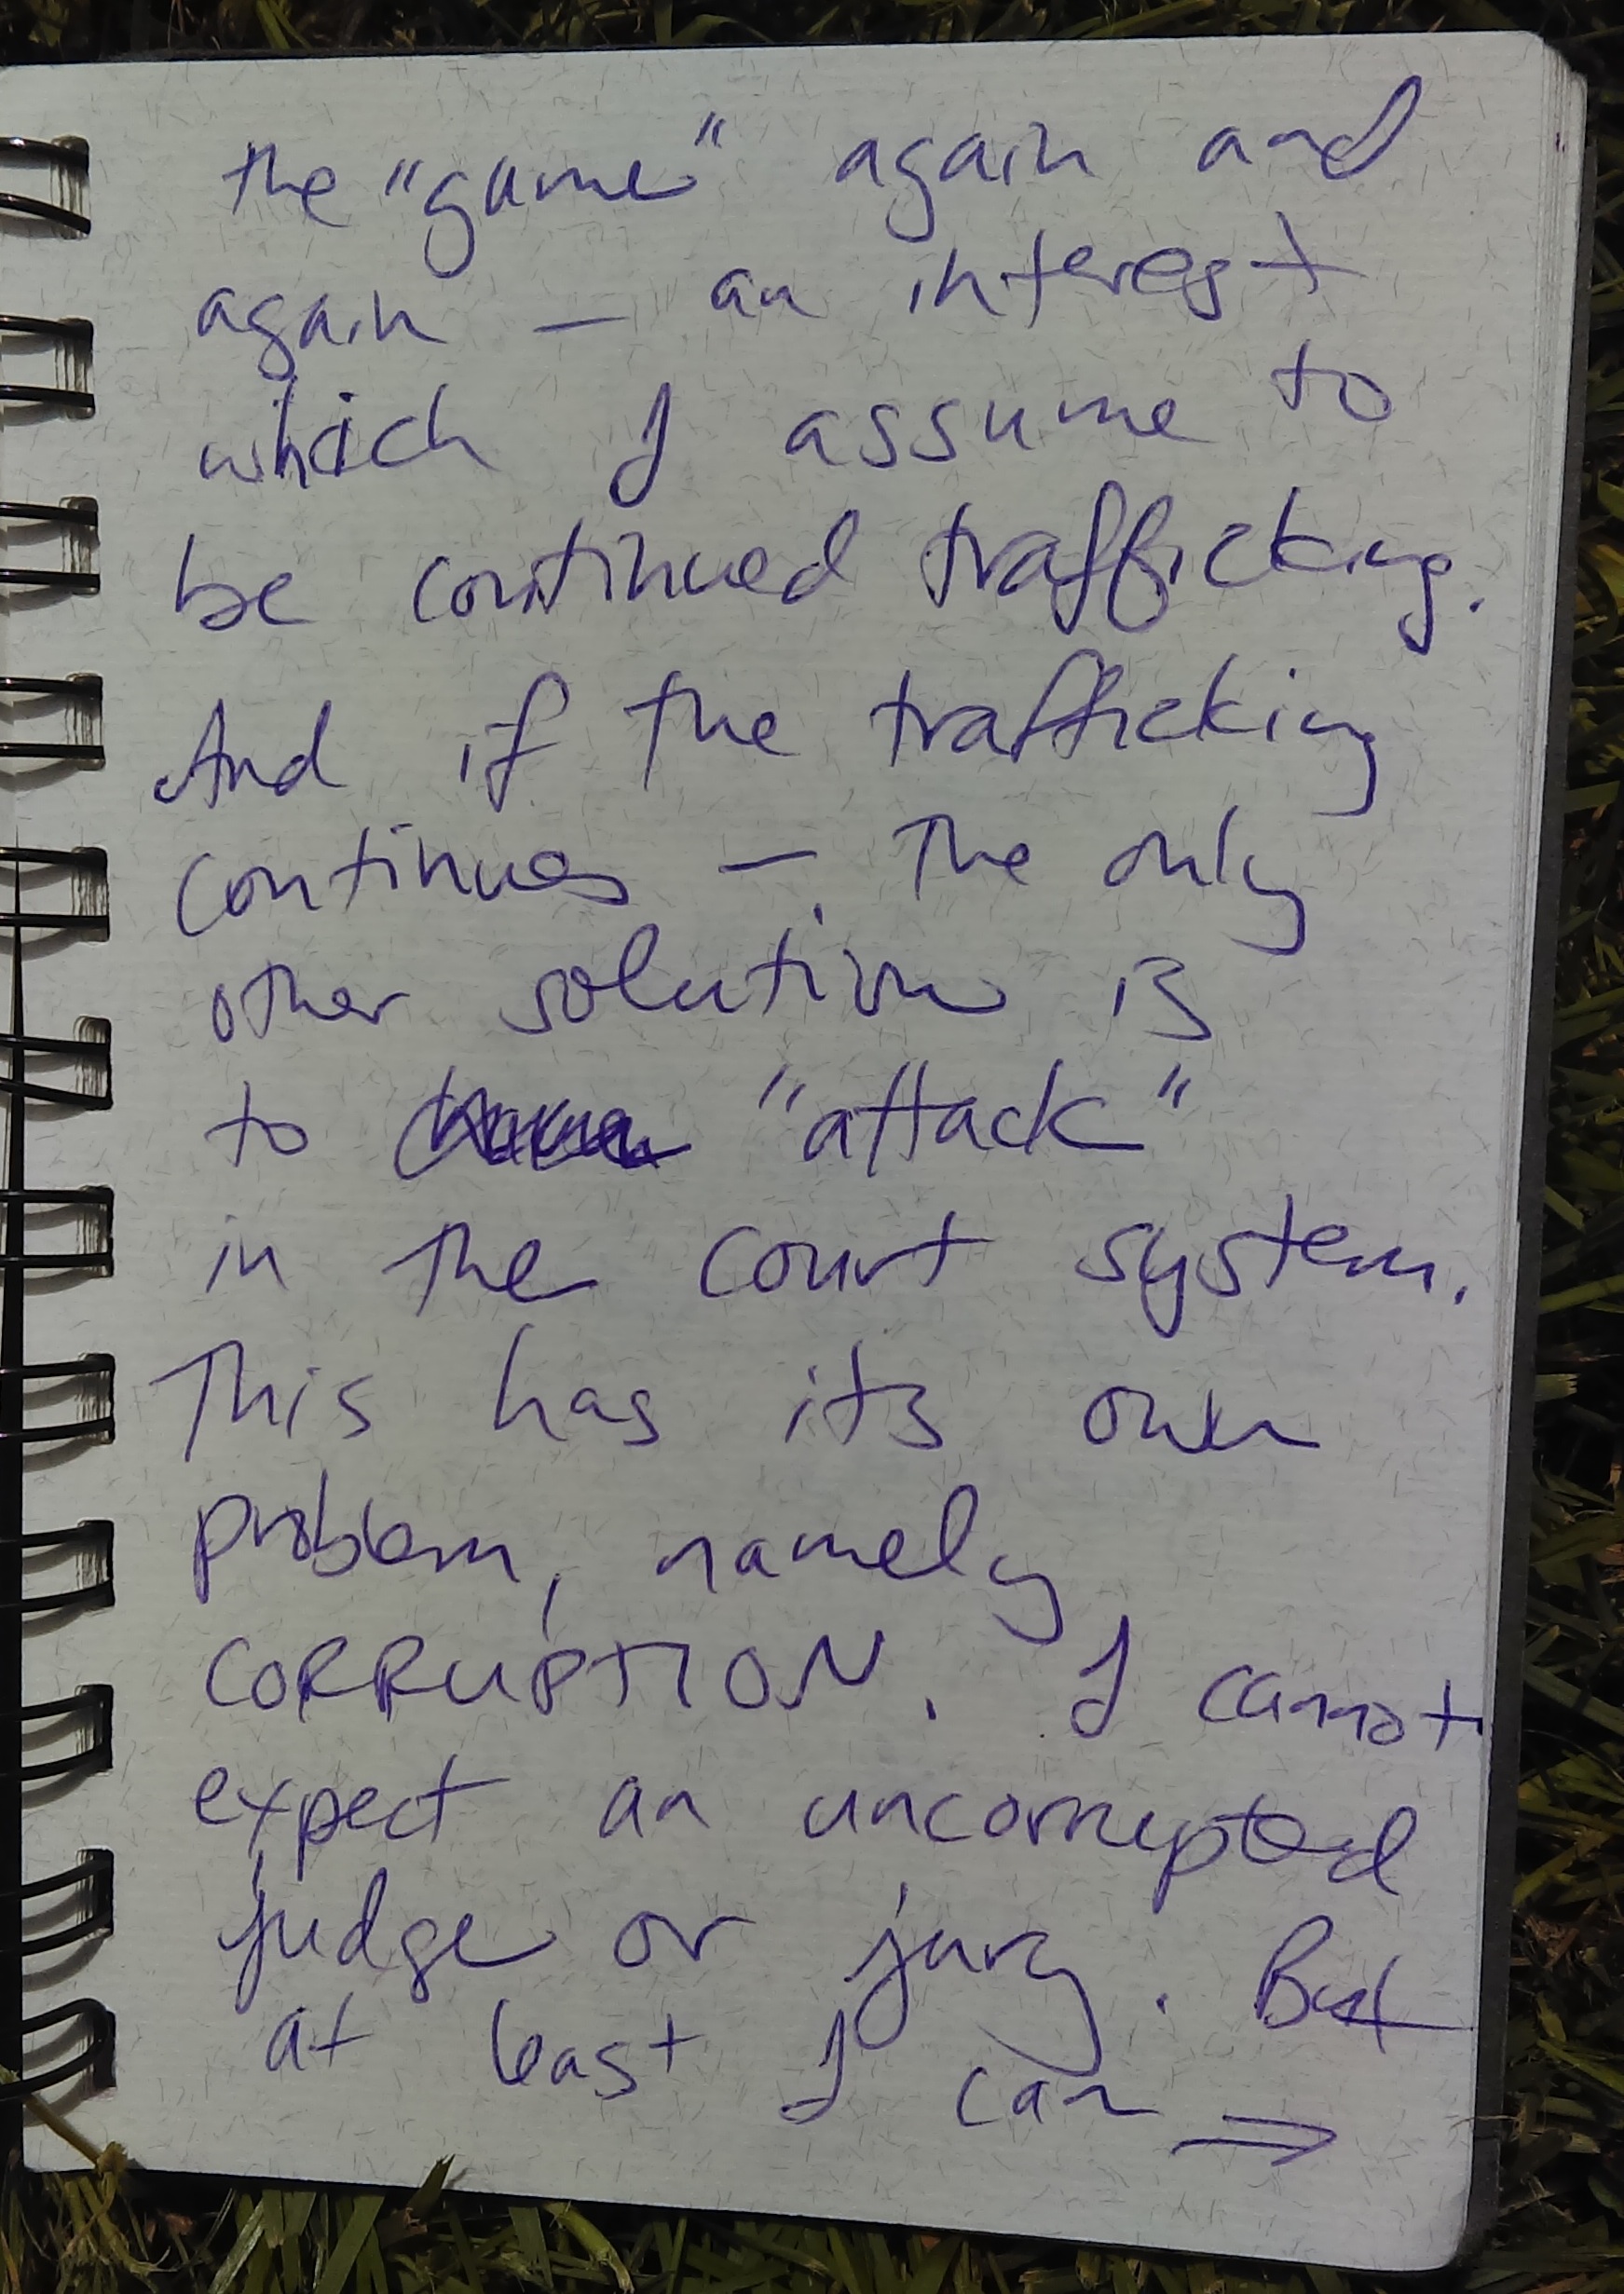 the "game" again and
again — an interest
which I assume to
be continued trafficking.
And if the trafficking
continues — the only
other solution is
to "attack"
in the court system.
This has its own
problem, namely
CORRUPTION. I cannot
expect an uncorrupted
judge or jury. But
at least I can →